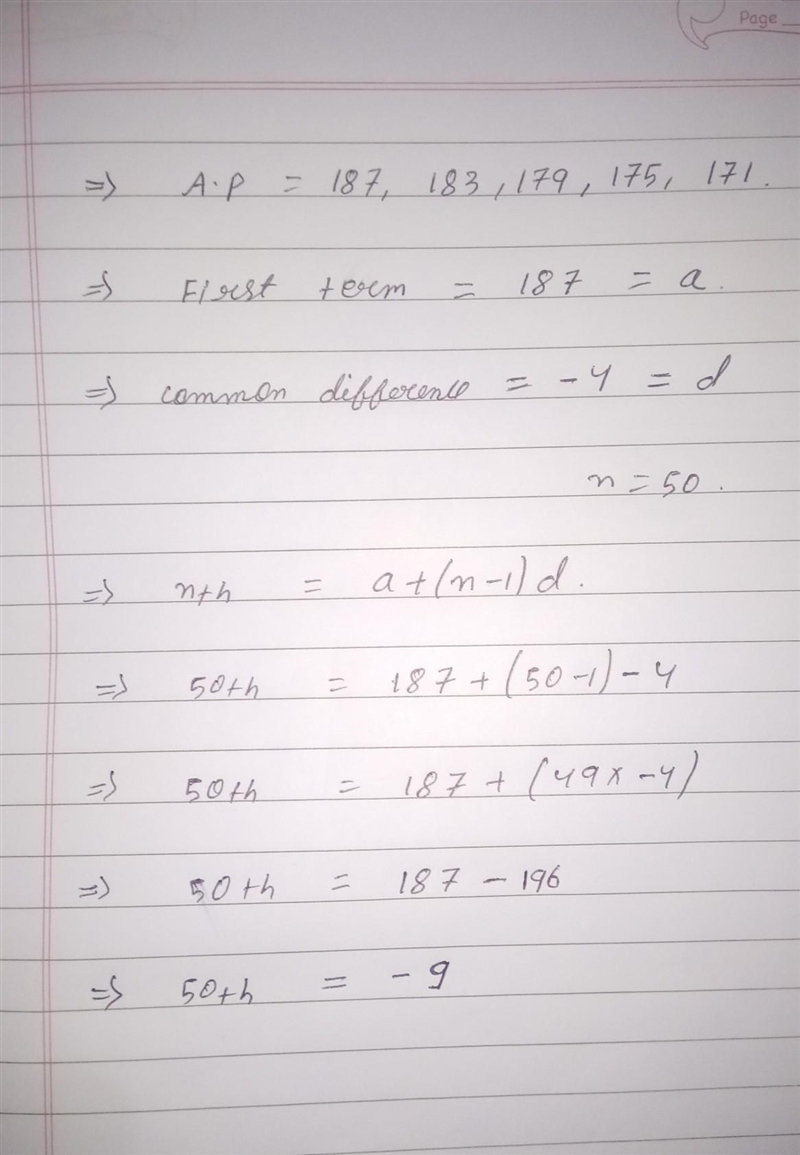 Page
=> A.P = 187, 183, 179, 175, 171.
=> First term = 187 = a.
=> common difference = -4 = d
n = 50.
=> nth = a+(n-1)d.
=> 50th = 187+(50-1)-4
=> 50th = 187+(49x-4)
=> 50th = 187-196
=> 50th = -9